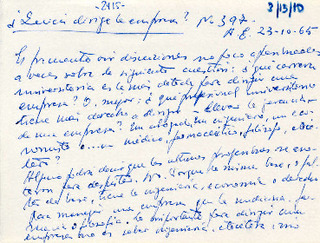 -2415-
¿Quién dirige la empresa? N. 397. 8/3/10
A E. 23-10-65
Es frecuente oir discusiones no poco apasionadas
a veces sobre la siguiente cuestión: ¿qué carrera
universitaria es la más dotada para dirigir una
empresa? O, mejor: ¿qué profesional universitario
tiene más derecho a dirigir y llevar la gerencia
de una empresa? Un abogado, un ingeniero, un eco-
nomista o... un médico, farmacéutico, filósofo, etcé-
tera?
Alguno podrá decir que los últimos profesionales se
por despistados. No. Porque la misma base, o fal-
ta de base, tiene la ingeniería, economía o derecho
para manejar una empresa que la medicina, far-
macia o filosofía. Lo importante para dirigir una
empresa no es saber ingeniería, etcétera, sino